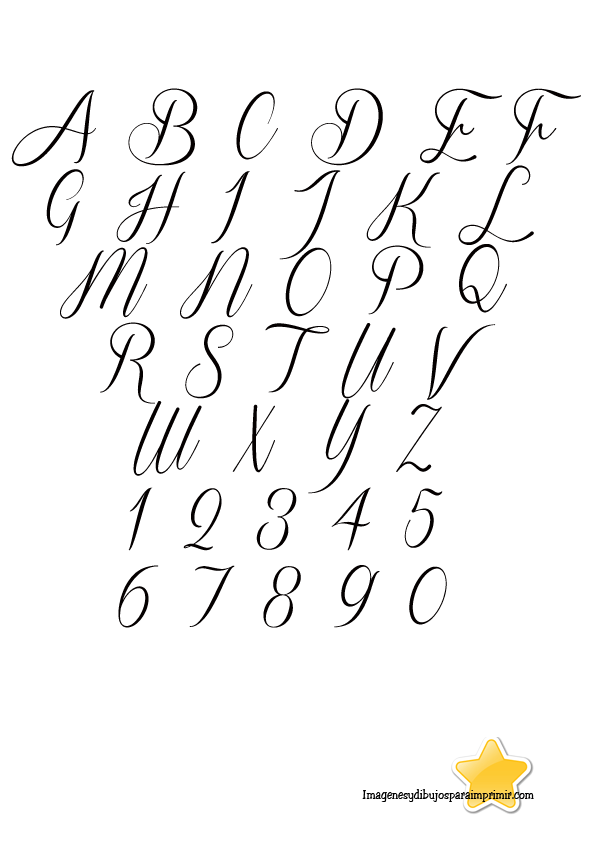 A B C D E F
G H I J K L
M N O P Q
R S T U V
W X Y Z
1 2 3 4 5
6 7 8 9 0
Imagenesydibujosparaimprimir.com